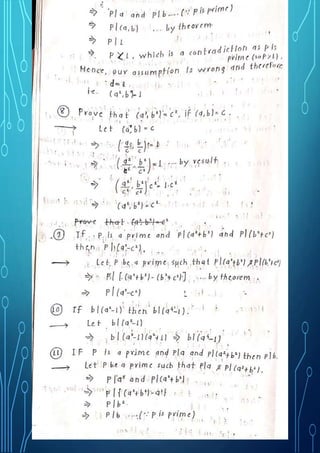 ⇒ P|a and P|b .... (∵ P is prime)
⇒ P|(a,b) ... by theorem
⇒ P|1
⇒ P∤1, which is a contradiction as p is prime (so P>1).
Hence, our assumption is wrong and therefore
d=1
i.e. (a²,b²)=1
⑧ Prove that (a²,b²)=c², if (a,b)=c.
→ Let (a,b)=c
⇒ (a/c, b/c)=1
⇒ (a²/c², b²/c²)=1 ... by result
⇒ (a²/c², b²/c²)c²=1·c²
⇒ (a²,b²)=c²
Prove that (a²,b²)=c²
⑨ If P is a prime and P|(a²+b²) and P|(b²+c²)
then P|(a²-c²).
→ Let P be a prime such that P|(a²+b²) & P|(b²+c²)
⇒ P|[(a²+b²)-(b²+c²)] ... by theorem.
⇒ P|(a²-c²)
⑩ If b|(a²-1) then b|(a⁴-1).
→ Let b|(a²-1)
⇒ b|(a²-1)(a²+1) ⇒ b|(a⁴-1)
⑪ If P is a prime and P|a and P|(a²+b²) then P|b.
→ Let P be a prime such that P|a & P|(a²+b²).
⇒ P|a² and P|(a²+b²)
⇒ P|[(a²+b²)-a²]
⇒ P|b²
⇒ P|b .... (∵ P is prime)